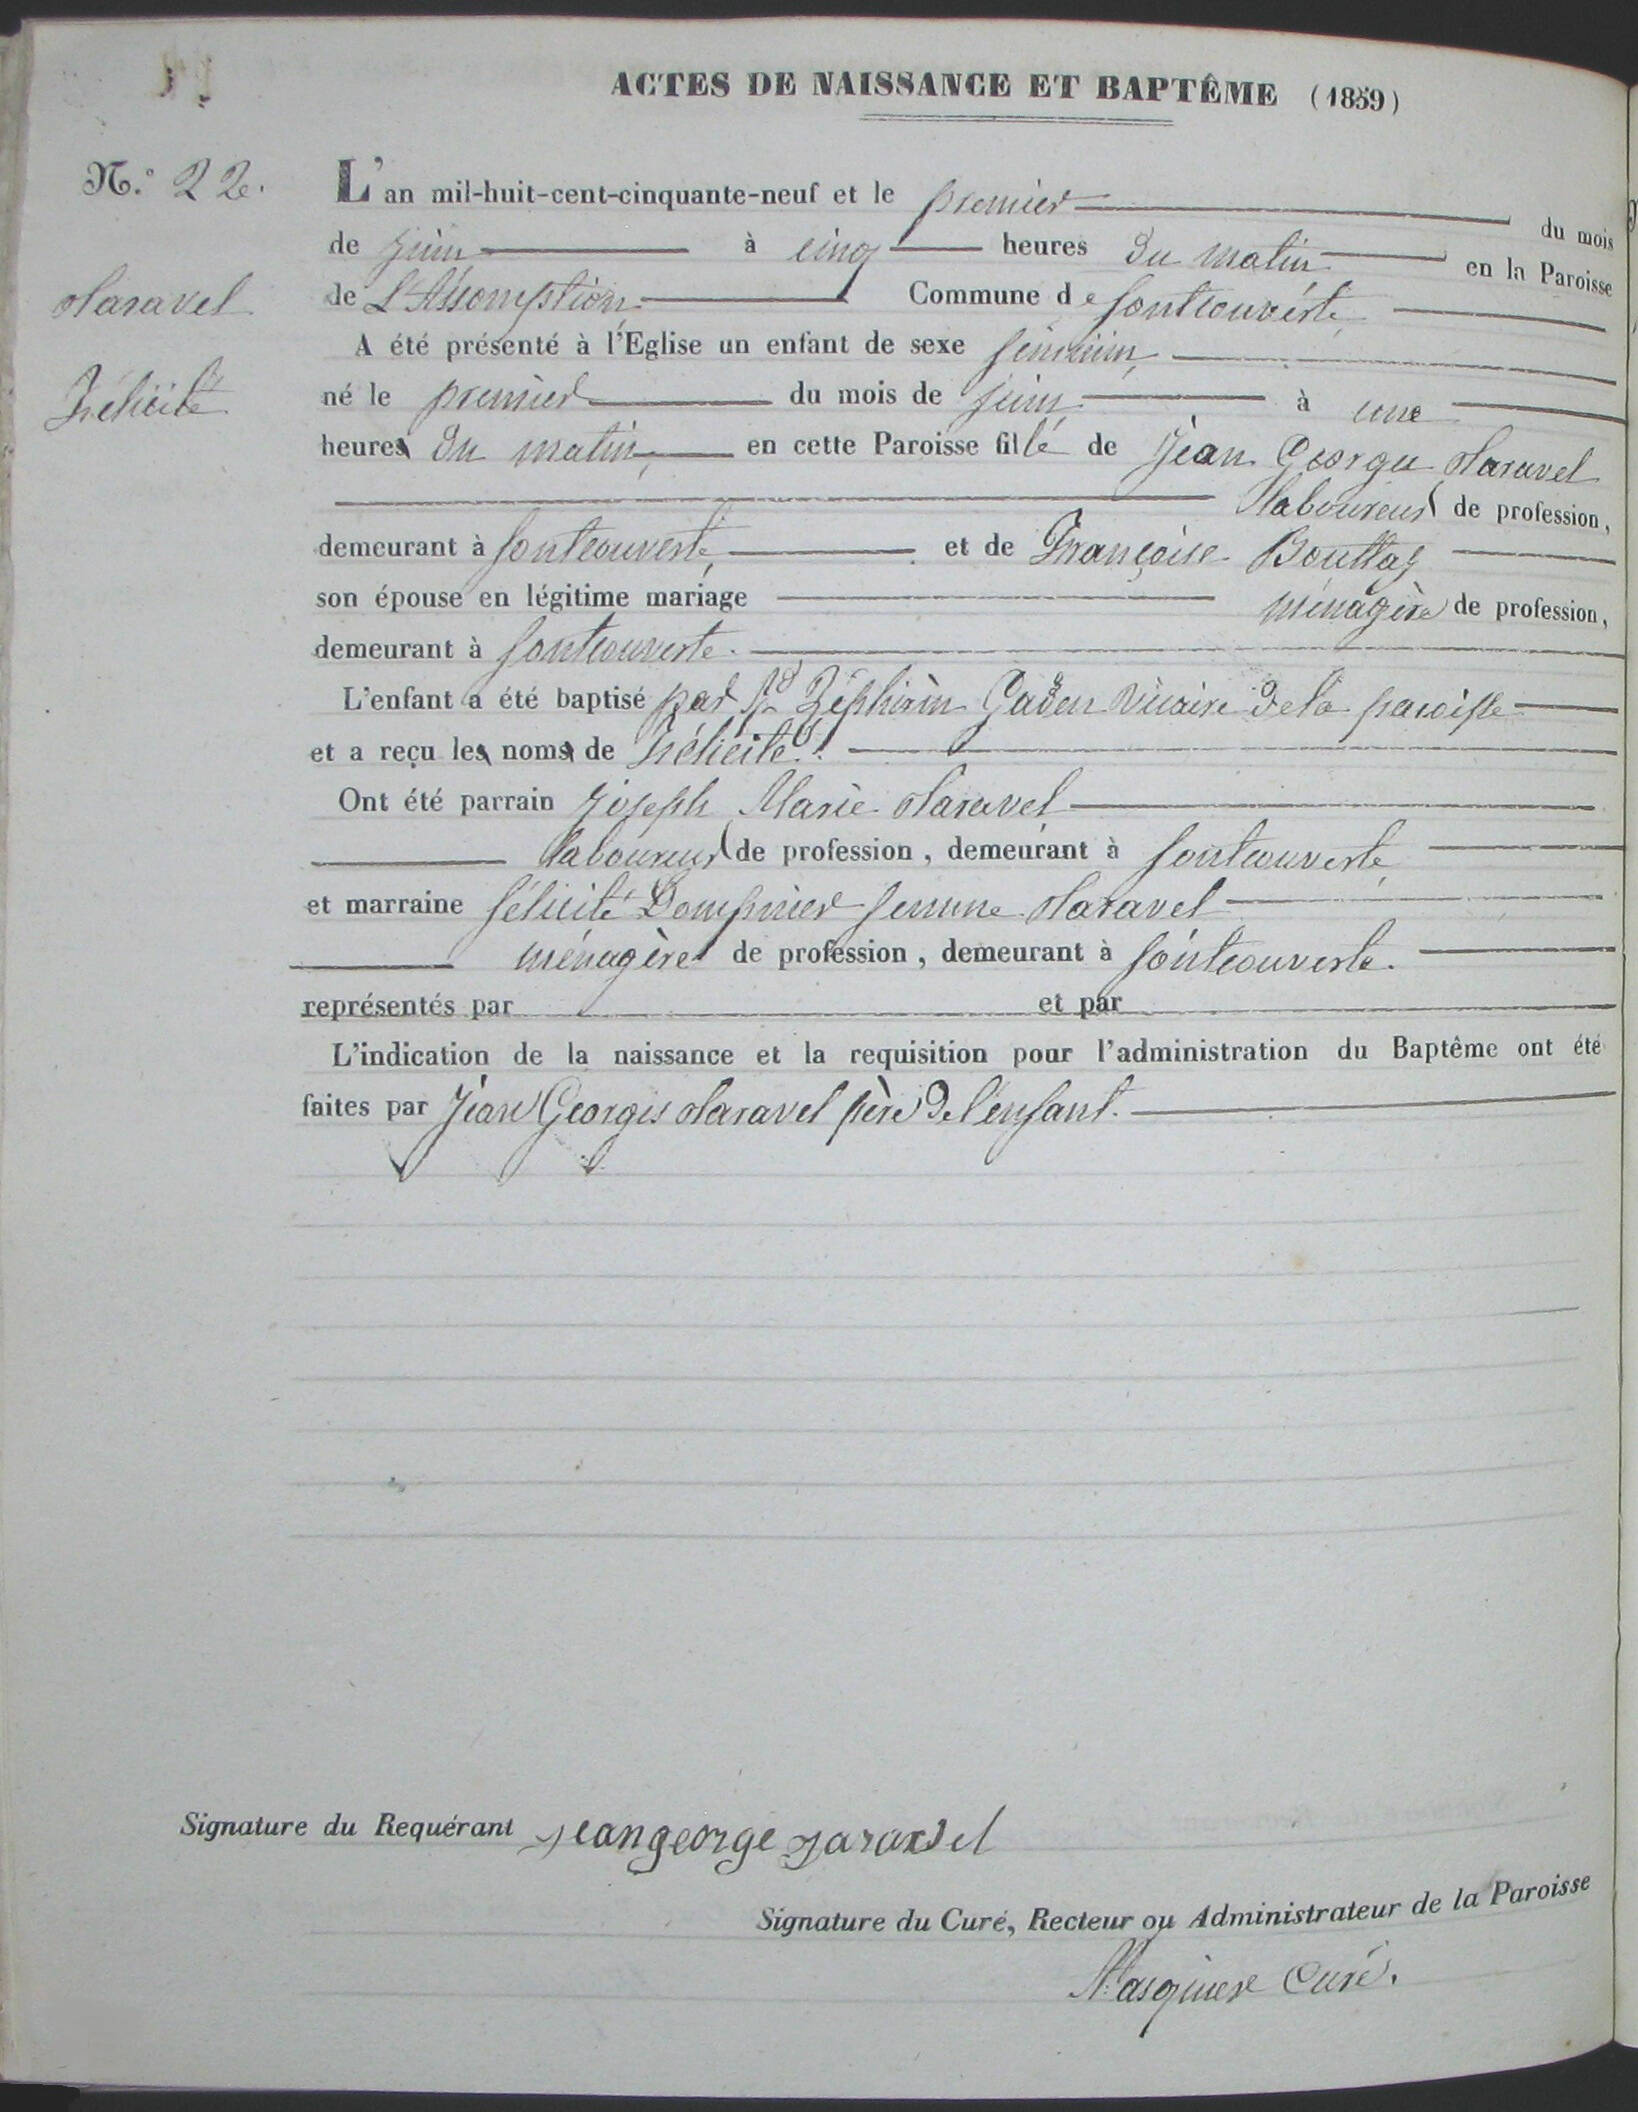 ACTES DE NAISSANCE ET BAPTÊME (1859)
N.° 22e.
Naravel
Félicité
L'an mil-huit-cent-cinquante-neuf et le premier du mois
de juin à cinq heures du matin en la Paroisse
de L'Assomption Commune de fontcouverte
A été présenté à l'Eglise un enfant de sexe féminin,
né le premier du mois de juin à une
heures du matin, en cette Paroisse fille de Jean George Naravel
laboureur de profession,
demeurant à fontcouverte, et de Françoise
son épouse en légitime mariage ménagère de profession,
demeurant à fontcouverte.
L'enfant a été baptisé par Rd Zéphirin Gaden vicaire de la paroisse
et a reçu les noms de Félicité.
Ont été parrain Joseph Marie Naravel
laboureur de profession, demeurant à fontcouverte
et marraine félicité Dompnier femme Naravel
ménagère de profession, demeurant à fontcouverte.
représentés par et par
L'indication de la naissance et la requisition pour l'administration du Baptême ont été
faites par Jean Georges Naravel père de l'enfant.
Signature du Requérant jean george
Signature du Curé, Recteur ou Administrateur de la Paroisse
Curé.